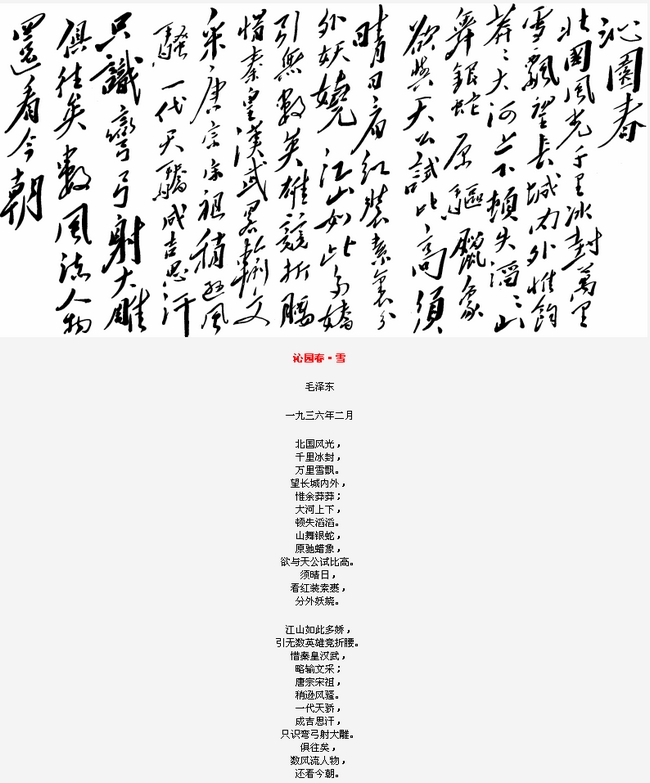 沁園春
北國風光千里冰封萬里
雪飄望長城内外惟餘
莽〻大河上下頓失滔〻山
舞銀蛇原驅臘象
欲與天公試比高須
晴日看紅裝素裹分
外妖嬈江山如此多嬌
引無數英雄競折腰
惜秦皇漢武畧輸文
采唐宗宋祖稍遜風
騷一代天驕成吉思汗
只識彎弓射大雕
俱往矣數風流人物
還看今朝
沁园春·雪
毛泽东
一九三六年二月
北国风光，
千里冰封，
万里雪飘。
望长城内外，
惟余莽莽；
大河上下，
顿失滔滔。
山舞银蛇，
原驰蜡象，
欲与天公试比高。
须晴日，
看红装素裹，
分外妖娆。
江山如此多娇，
引无数英雄竞折腰。
惜秦皇汉武，
略输文采；
唐宗宋祖，
稍逊风骚。
一代天骄，
成吉思汗，
只识弯弓射大雕。
俱往矣，
数风流人物，
还看今朝。